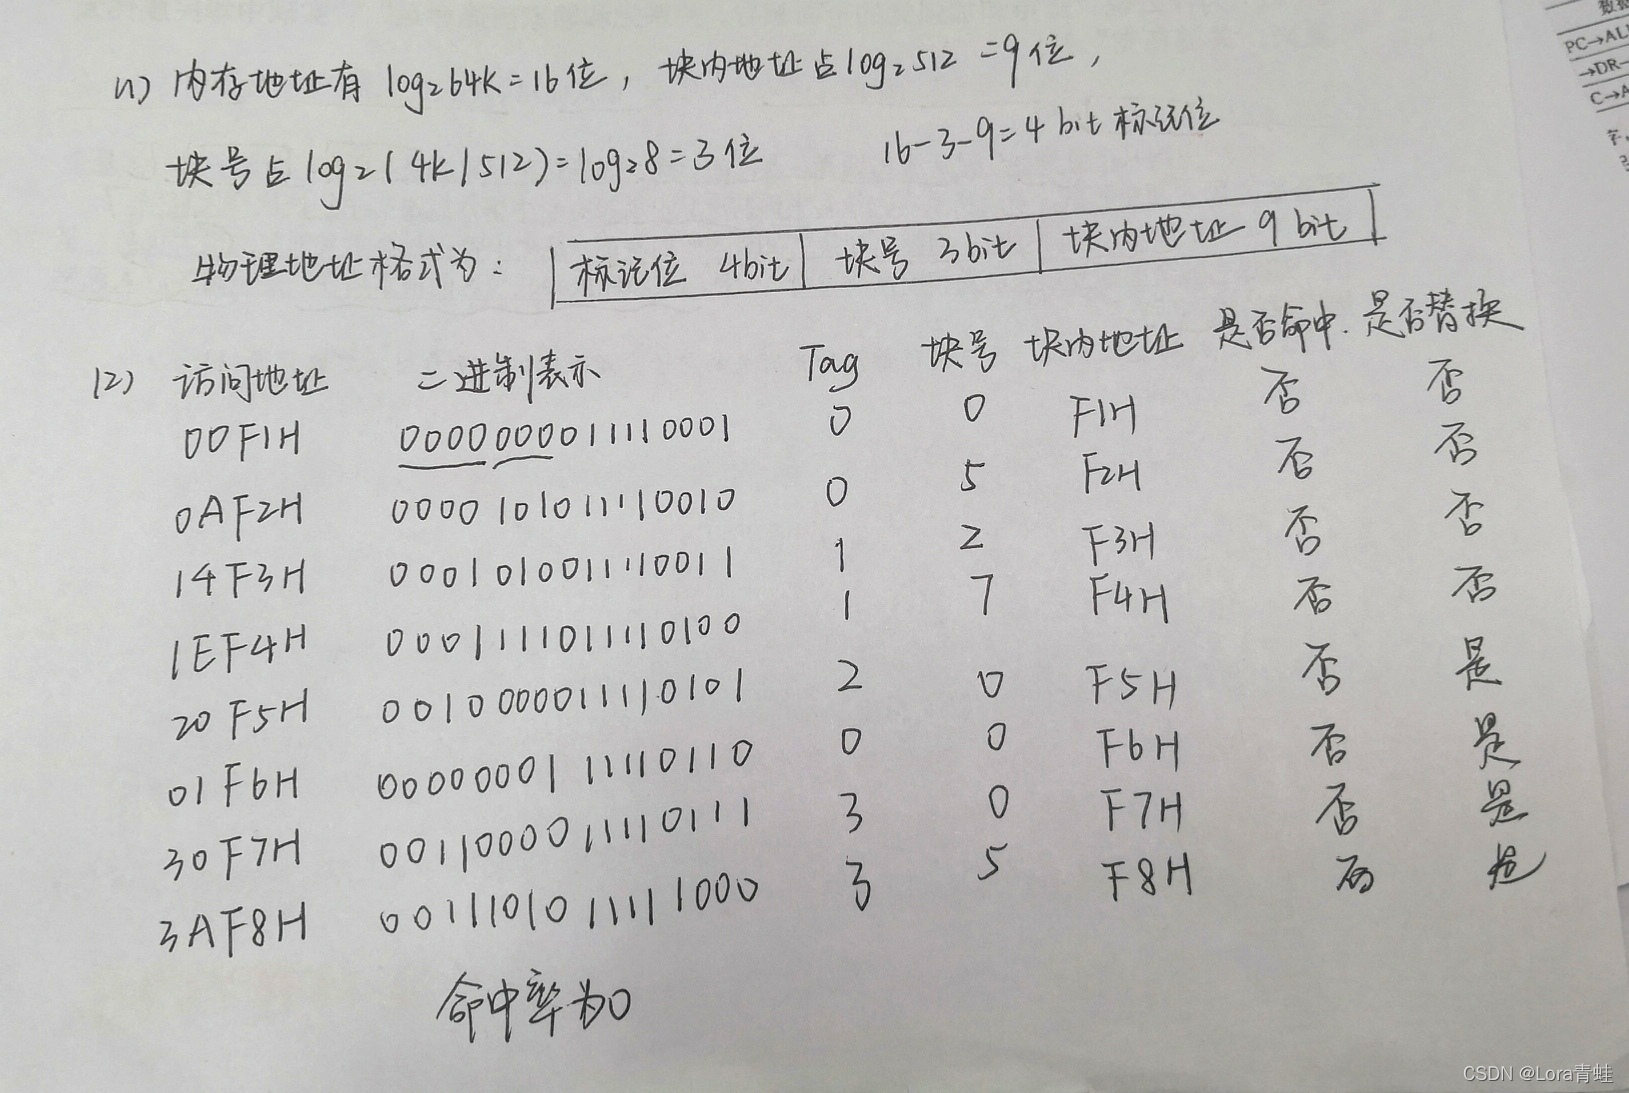 (1) 内存地址有 log₂64K=16位，块内地址占log₂512=9位，
块号占log₂(4K/512)=log₂8=3位 16-3-9=4 bit 标记位
物理地址格式为： 标记位 4bit 块号 3bit 块内地址 9 bit
(2) 访问地址 二进制表示 Tag 块号 块内地址 是否命中. 是否替换
00F1H 0000000011110001 0 0 F1H 否 否
0AF2H 0000101011110010 0 5 F2H 否 否
14F3H 0001010011110011 1 2 F3H 否 否
1EF4H 0001111011110100 1 7 F4H 否 否
20F5H 0010000011110101 2 0 F5H 否 是
01F6H 00000001 11110110 0 0 F6H 否 是
30F7H 0011000011110111 3 0 F7H 否 是
3AF8H 00111010 11111000 3 5 F8H 否 是
命中率为0
数据
PC→AL
→DR-
C→A
CSDN @Lora青蛙